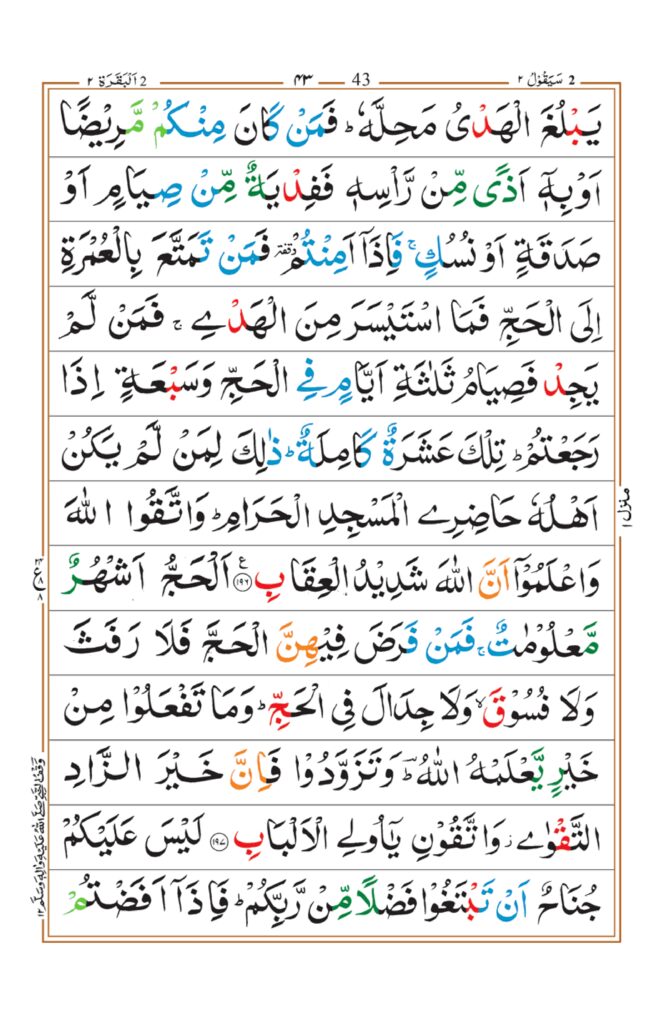 2 سَيَقُوْلُ ٢ 43 ٤٣ 2 اَلْبَقَرَة ٢
يَبْلُغَ الْهَدْىُ مَحِلَّهٗ ؕ فَمَنْ كَانَ مِنْكُمْ مَّرِيْضًا
اَوْبِهٖۤ اَذًى مِّنْ رَّاْسِهٖ فَفِدْيَةٌ مِّنْ صِيَامٍ اَوْ
صَدَقَةٍ اَوْ نُسُكٍ ۚ فَاِذَاۤ اَمِنْتُمْ وقفة فَمَنْ تَمَتَّعَ بِالْعُمْرَةِ
اِلَى الْحَجِّ فَمَا اسْتَيْسَرَ مِنَ الْهَدْىِ ۚ فَمَنْ لَّمْ
يَجِدْ فَصِيَامُ ثَلٰثَةِ اَيَّامٍ فِى الْحَجِّ وَسَبْعَةٍ اِذَا
رَجَعْتُمْ ؕ تِلْكَ عَشَرَةٌ كَامِلَةٌ ؕ ذٰلِكَ لِمَنْ لَّمْ يَكُنْ
اَهْلُهٗ حَاضِرِى الْمَسْجِدِ الْحَرَامِ ؕ وَاتَّقُوا اللّٰهَ
وَاعْلَمُوْۤا اَنَّ اللّٰهَ شَدِيْدُ الْعِقَابِ ۝١٩٦ ع اَلْحَجُّ اَشْهُرٌ
مَّعْلُوْمٰتٌ ۚ فَمَنْ فَرَضَ فِيْهِنَّ الْحَجَّ فَلَا رَفَثَ
وَلَا فُسُوْقَ ۙ وَلَا جِدَالَ فِى الْحَجِّ ؕ وَمَا تَفْعَلُوْا مِنْ
خَيْرٍ يَّعْلَمْهُ اللّٰهُ ؔؕ وَتَزَوَّدُوْا فَاِنَّ خَيْرَ الزَّادِ
التَّقْوٰى ز وَاتَّقُوْنِ يٰۤاُولِى الْاَلْبَابِ ۝١٩٧ لَيْسَ عَلَيْكُمْ
جُنَاحٌ اَنْ تَبْتَغُوْا فَضْلًا مِّنْ رَّبِّكُمْ ؕ فَاِذَاۤ اَفَضْتُمْ
منزل ١